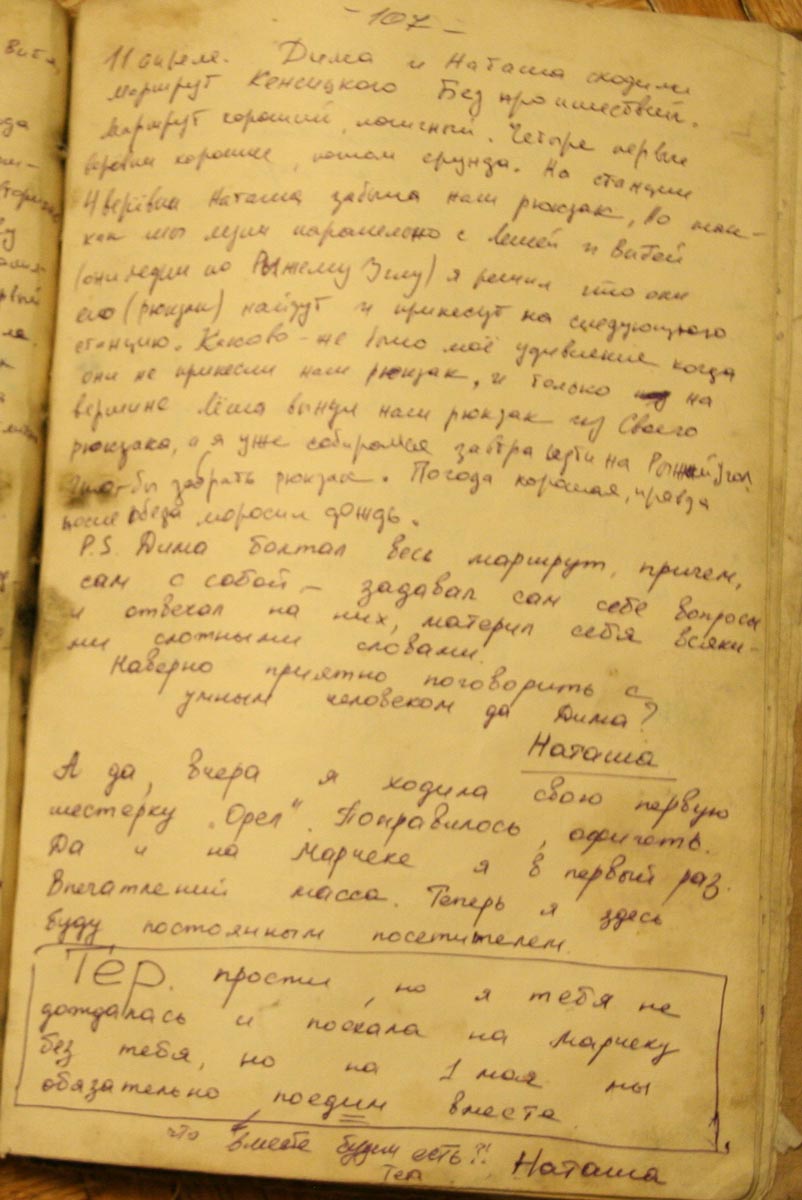 - 107 -
11 апреля. Дима и Наташа сходили
маршрут Кенсицкого Без происшествий.
Маршрут хороший, логичный. Четыре первые
верёвки хорошие, потом ерунда. На станции
4 верёвки Наташа забыла наш рюкзак, Но так-
как мы лезли паралельно с Лёшей и Витей
(они лезли по Рыжему Углу) я решил что они
его (рюкзак) найдут и принесут на следующую
станцию. Каково-же было моё удивление когда
они не принесли наш рюкзак, и только на
вершине Лёша вынул наш рюкзак из Своего
рюкзака, а я уже собирался завтра идти на Рыжий Угол
Что-бы забрать рюкзак. Погода хорошая, правда
после обеда моросил дождь.
P.S. Дима болтал весь маршрут, причем,
сам с собой – задавал сам себе вопросы
и отвечал на них, материл себя всяки-
ми сложными словами.
Наверно приятно поговорить с
умным человеком да Дима?
Наташа
А да, вчера я ходила свою первую
шестерку „Орел". Понравилось, офигеть.
Да и на Марчеке я в первый раз.
Впечатлений масса. Теперь я здесь
буду постоянным посетителем.
Тёр. прости, но я тебя не
дождалась и поехала на Марчеку
без тебя, но на 1 мая мы
обязательно поедим вместе.
что вместе будем есть?!
Тёр
Наташа
Витя,